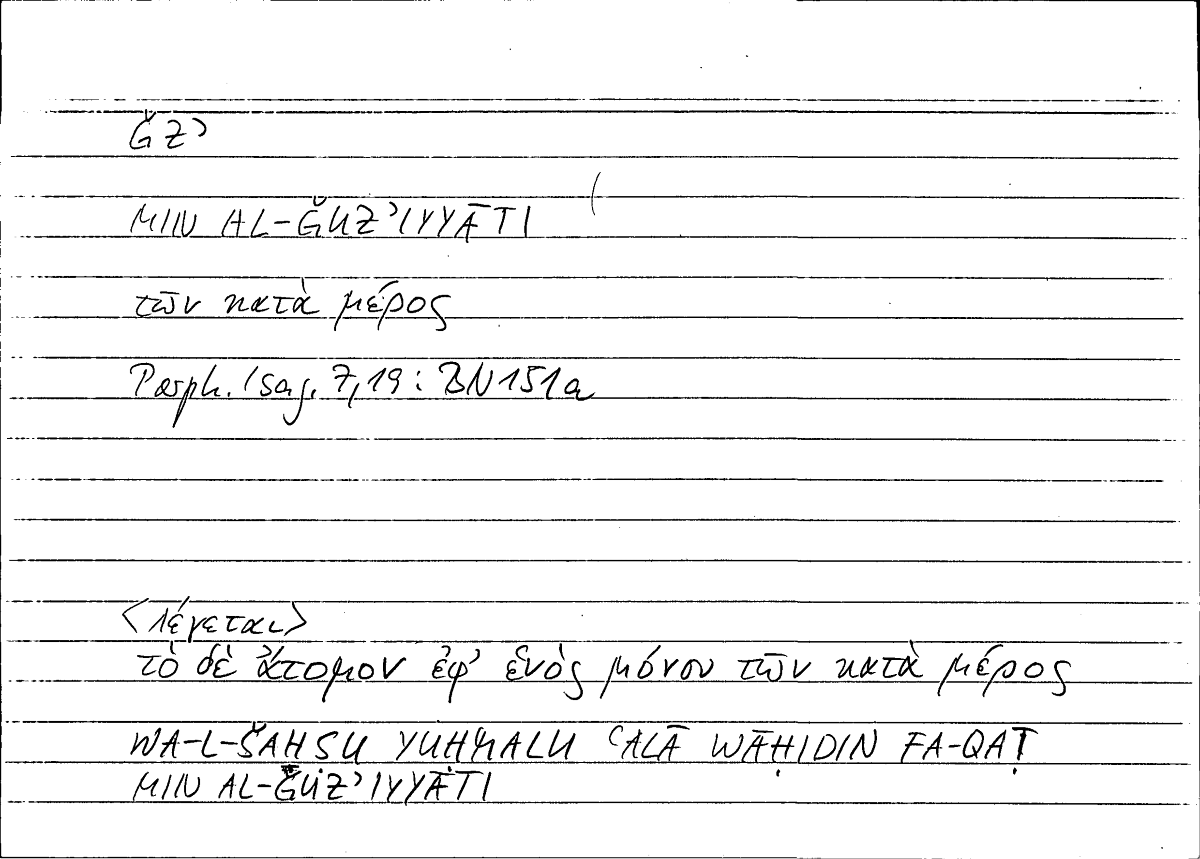 ǦZʾ
MIN AL-ǦUZʾIYYĀTI
τῶν κατὰ μέρος
Porph. Isag. 7,19 : BN151a
<λέγεται>
τὸ δὲ ἄτομον ἐφ’ ἑνὸς μόνου τῶν κατὰ μέρος
WA-L-ŠAHSU YUHMALU ʿALĀ WĀḤIDIN FA-QAṬ
MIN AL-ǦUZʾIYYĀTI